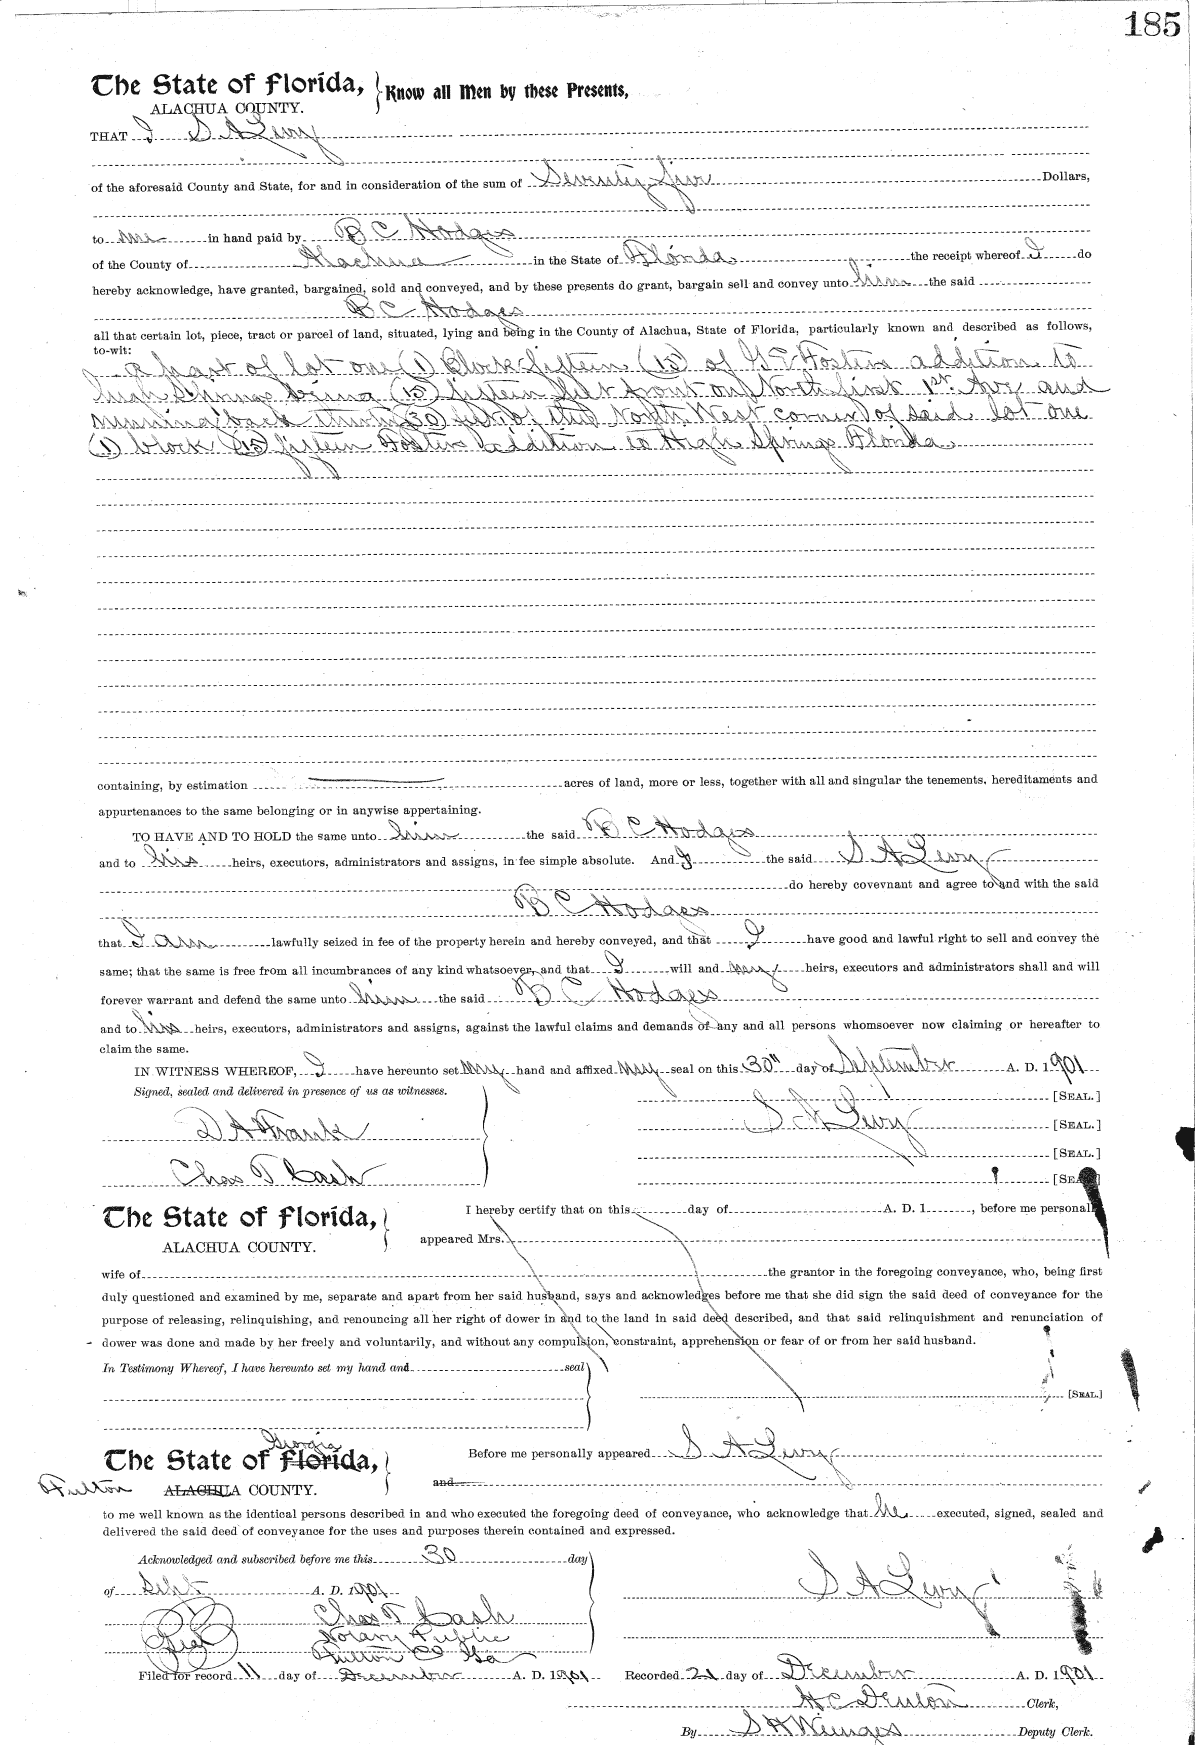 185
The State of Florida, Know all Men by these Presents,
ALACHUA COUNTY.
THAT I S A Levy
of the aforesaid County and State, for and in consideration of the sum of Seventy five Dollars,
to me in hand paid by B C Hodges
of the County of Alachua in the State of Florida the receipt whereof I do
hereby acknowledge, have granted, bargained, sold and conveyed, and by these presents do grant, bargain sell and convey unto him the said
B C Hodges
all that certain lot, piece, tract or parcel of land, situated, lying and being in the County of Alachua, State of Florida, particularly known and described as follows,
to-wit:
a part of lot one (1) Block fifteen (15) of G E Fosters addition to
High Springs being (15) fifteen feet front on North first 1st. Ave and
running back thirty (30) feet of the North West corner of said lot one
(1) block (15) fifteen Fosters addition to High Springs Florida
containing, by estimation acres of land, more or less, together with all and singular the tenements, hereditaments and
appurtenances to the same belonging or in anywise appertaining.
TO HAVE AND TO HOLD the same unto him the said B C Hodges
and to his heirs, executors, administrators and assigns, in fee simple absolute. And I the said S A Levy
do hereby covevnant and agree to and with the said
B C Hodges
that I am lawfully seized in fee of the property herein and hereby conveyed, and that I have good and lawful right to sell and convey the
same; that the same is free from all incumbrances of any kind whatsoever, and that I will and my heirs, executors and administrators shall and will
forever warrant and defend the same unto him the said B C Hodges
and to his heirs, executors, administrators and assigns, against the lawful claims and demands of any and all persons whomsoever now claiming or hereafter to
claim the same.
IN WITNESS WHEREOF, I have hereunto set my hand and affixed my seal on this 30" day of September A. D. 1901
Signed, sealed and delivered in presence of us as witnesses. [SEAL.]
D A Frank S A Levy [SEAL.]
[SEAL.]
Chas T Cash [SEAL.]
The State of Florida, I hereby certify that on this day of A. D. 1 , before me personally
ALACHUA COUNTY. appeared Mrs.
wife of the grantor in the foregoing conveyance, who, being first
duly questioned and examined by me, separate and apart from her said husband, says and acknowledges before me that she did sign the said deed of conveyance for the
purpose of releasing, relinquishing, and renouncing all her right of dower in and to the land in said deed described, and that said relinquishment and renunciation of
dower was done and made by her freely and voluntarily, and without any compulsion, constraint, apprehension or fear of or from her said husband.
In Testimony Whereof, I have hereunto set my hand and seal
[SEAL.]
Georgia
The State of Florida, Before me personally appeared S A Levy
Fulton ALACHUA COUNTY. and
to me well known as the identical persons described in and who executed the foregoing deed of conveyance, who acknowledge that he executed, signed, sealed and
delivered the said deed of conveyance for the uses and purposes therein contained and expressed.
Acknowledged and subscribed before me this 30 day
of Sept A. D. 1901 S A Levy
Chas T Cash
Notary Public
Fulton Co Ga
Filed for record 11 day of December A. D. 1901 Recorded 21 day of December A. D. 1901
H C Denton Clerk,
By S H Wienges Deputy Clerk.